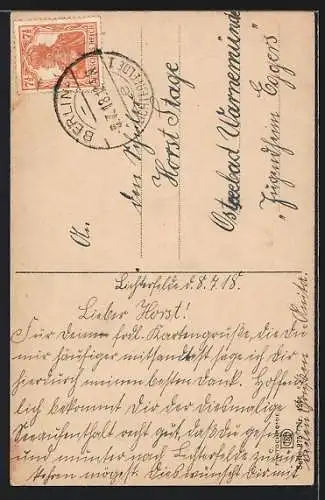 BERLIN
LICHTERFELDE 1
An
den Schüler
Horst Stage
Ostseebad Warnemünde
"Jugendheim Eggers
Lichterfelde d. 8. 7. 18.
Lieber Horst!
Für Deine frdl. Kartengrüße, die Du
mir häufiger mitsandtest sage ich Dir
hierdurch meinen besten Dank. Hoffent-
lich bekommt Dir der diesmalige
Seeaufenthalt recht gut, daß Du gesund
und munter nach Lichterfelde zurück-
kehren mögest. Dies wünscht Dir mit